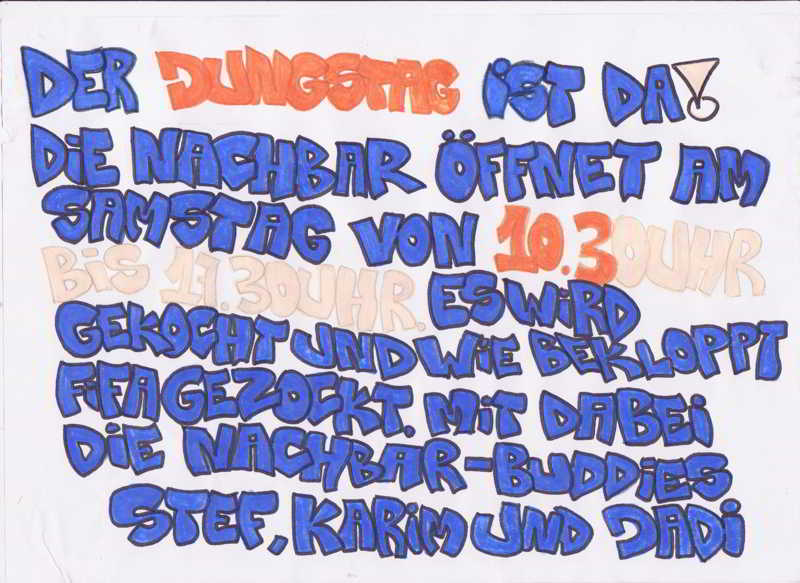 DER JUNGSTAG iST DA!
DiE NACHBAR ÖFFNET AM
SAMSTAG VON 10.30UHR
BiS 17.30UHR. ES WiRD
GEKOCHT UND WiE BEKLOPPT
FiFA GEZOCKT. MiT DABEi
DiE NACHBAR-BUDDiES
STEF, KARiM UND JADi